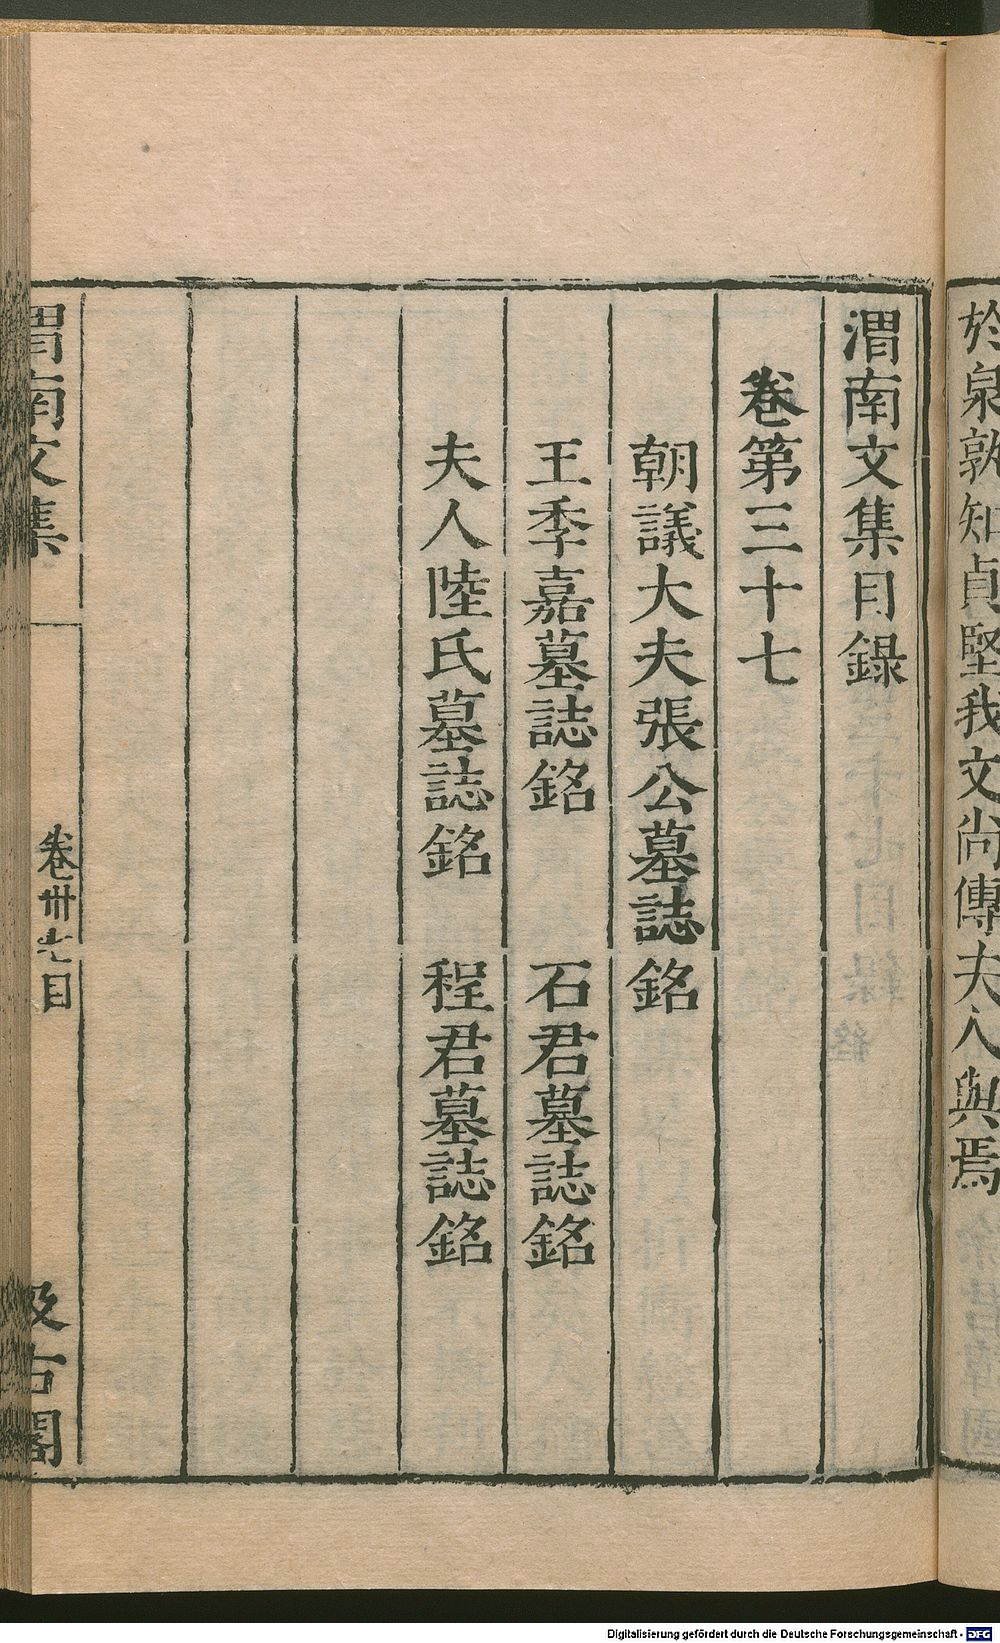 於泉敦知貞堅我文尚傳夫人與焉
渭南文集目錄
卷第三十七
朝議大夫張公墓誌銘
王季嘉墓誌銘 石君墓誌銘
夫人陸氏墓誌銘 程君墓誌銘
渭南文集 卷卅七目 汲古閣
Digitalisierung gefördert durch die Deutsche Forschungsgemeinschaft - DFG